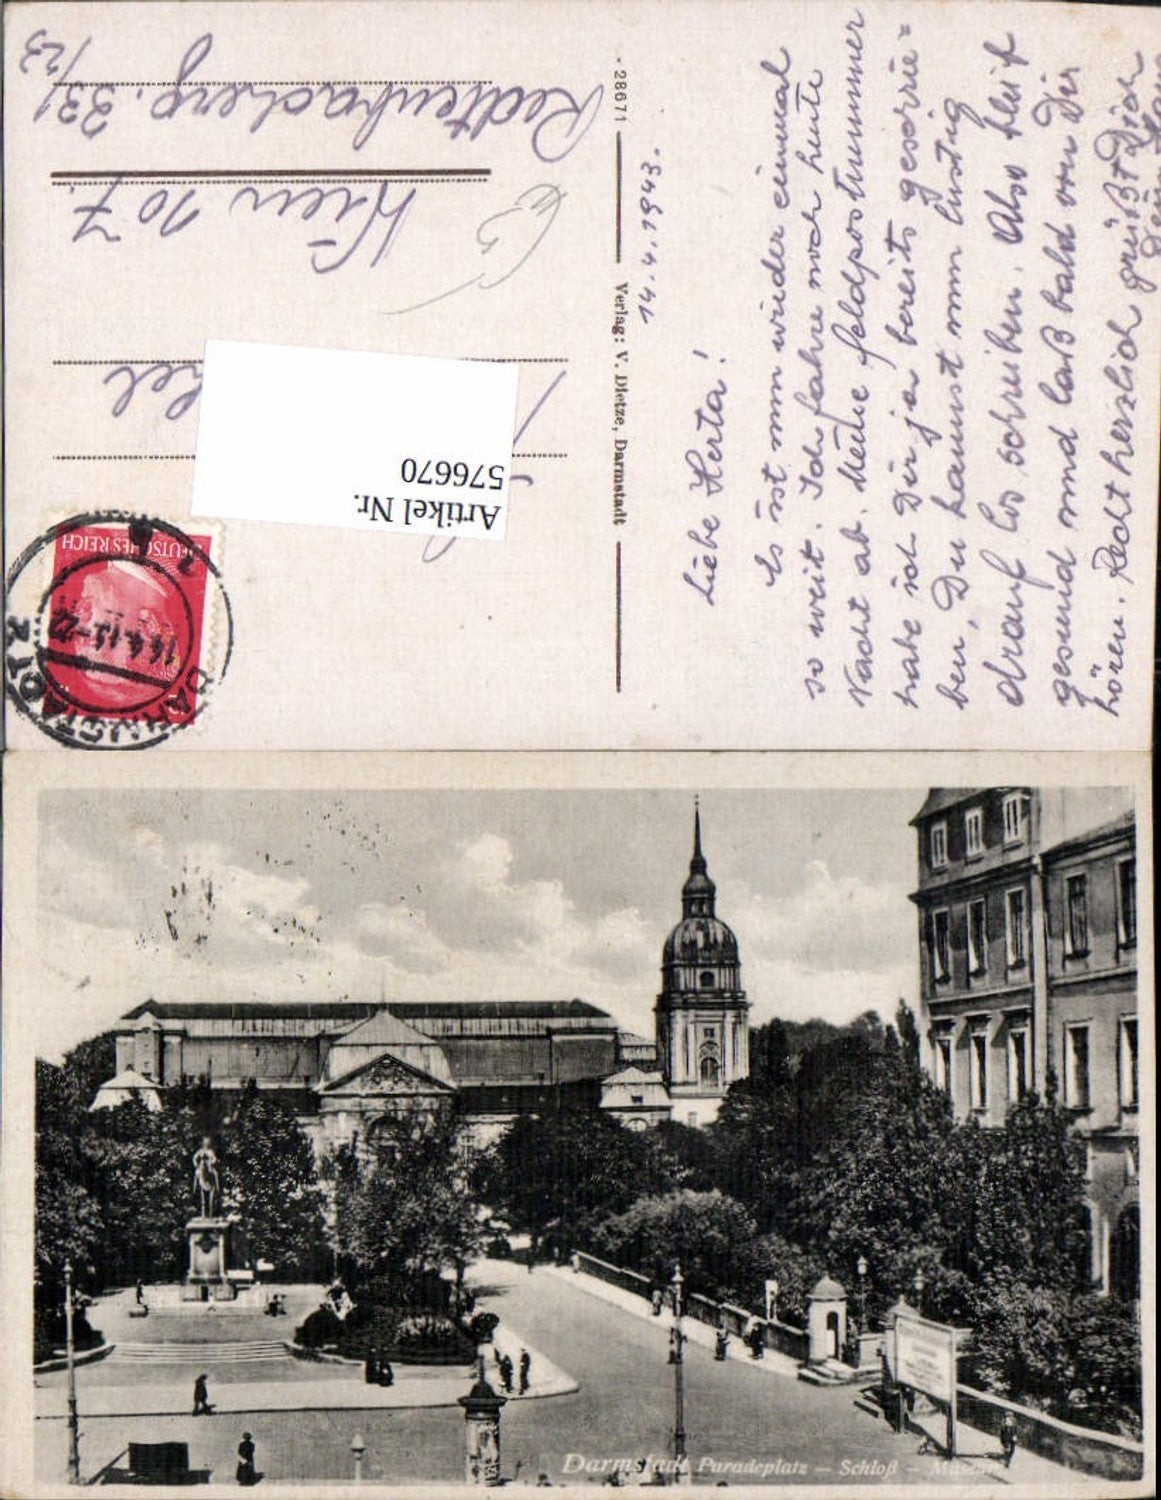 Liebe Herta!
14.4.1943.
Es ist nun wieder einmal
so weit. Ich fahre noch heute
Nacht ab. Meine Feldpostnummer
habe ich Dir ja bereits geschrie=
ben, Du kannst nun lustig
drauf los schreiben. Also bleib
gesund und laß bald von Dir
hören. Recht herzlich grüßt Dich
Dein
- 28671
Verlag: V. Dietze, Darmstadt
DEUTSCHES REICH
DARMSTADT 2
14.4.43-22
Artikel Nr.
576670
Wien 107.
Redtenbacherg. 33/
/23
Darmstadt Paradeplatz – Schloß – Museum